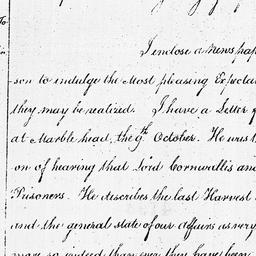 To
I enclose a Newspap
-son to indulge the Most pleasing Expecta
they may be realized. I have a Letter
at Marblehead, the 9th October. He was th
on of hearing that Lord Cornwallis and
Prisoners. He describes the last Harvest
and the general state of our affairs as very
more so indeed than ever they have been